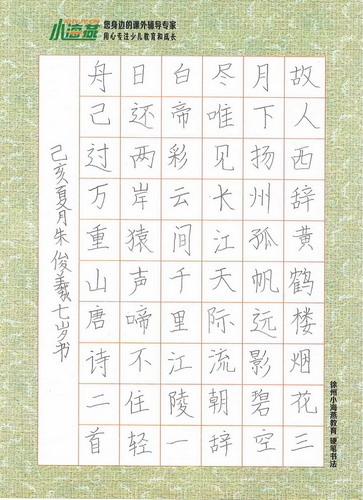 小海燕
您身边的课外辅导专家
用心专注少儿教育和成长
故人西辞黄鹤楼烟花三
月下扬州孤帆远影碧空
尽唯见长江天际流朝辞
白帝彩云间千里江陵一
日还两岸猿声啼不住轻
舟己过万重山唐诗二首
己亥夏月朱俊羲七岁书
徐州小海燕教育 硬笔书法